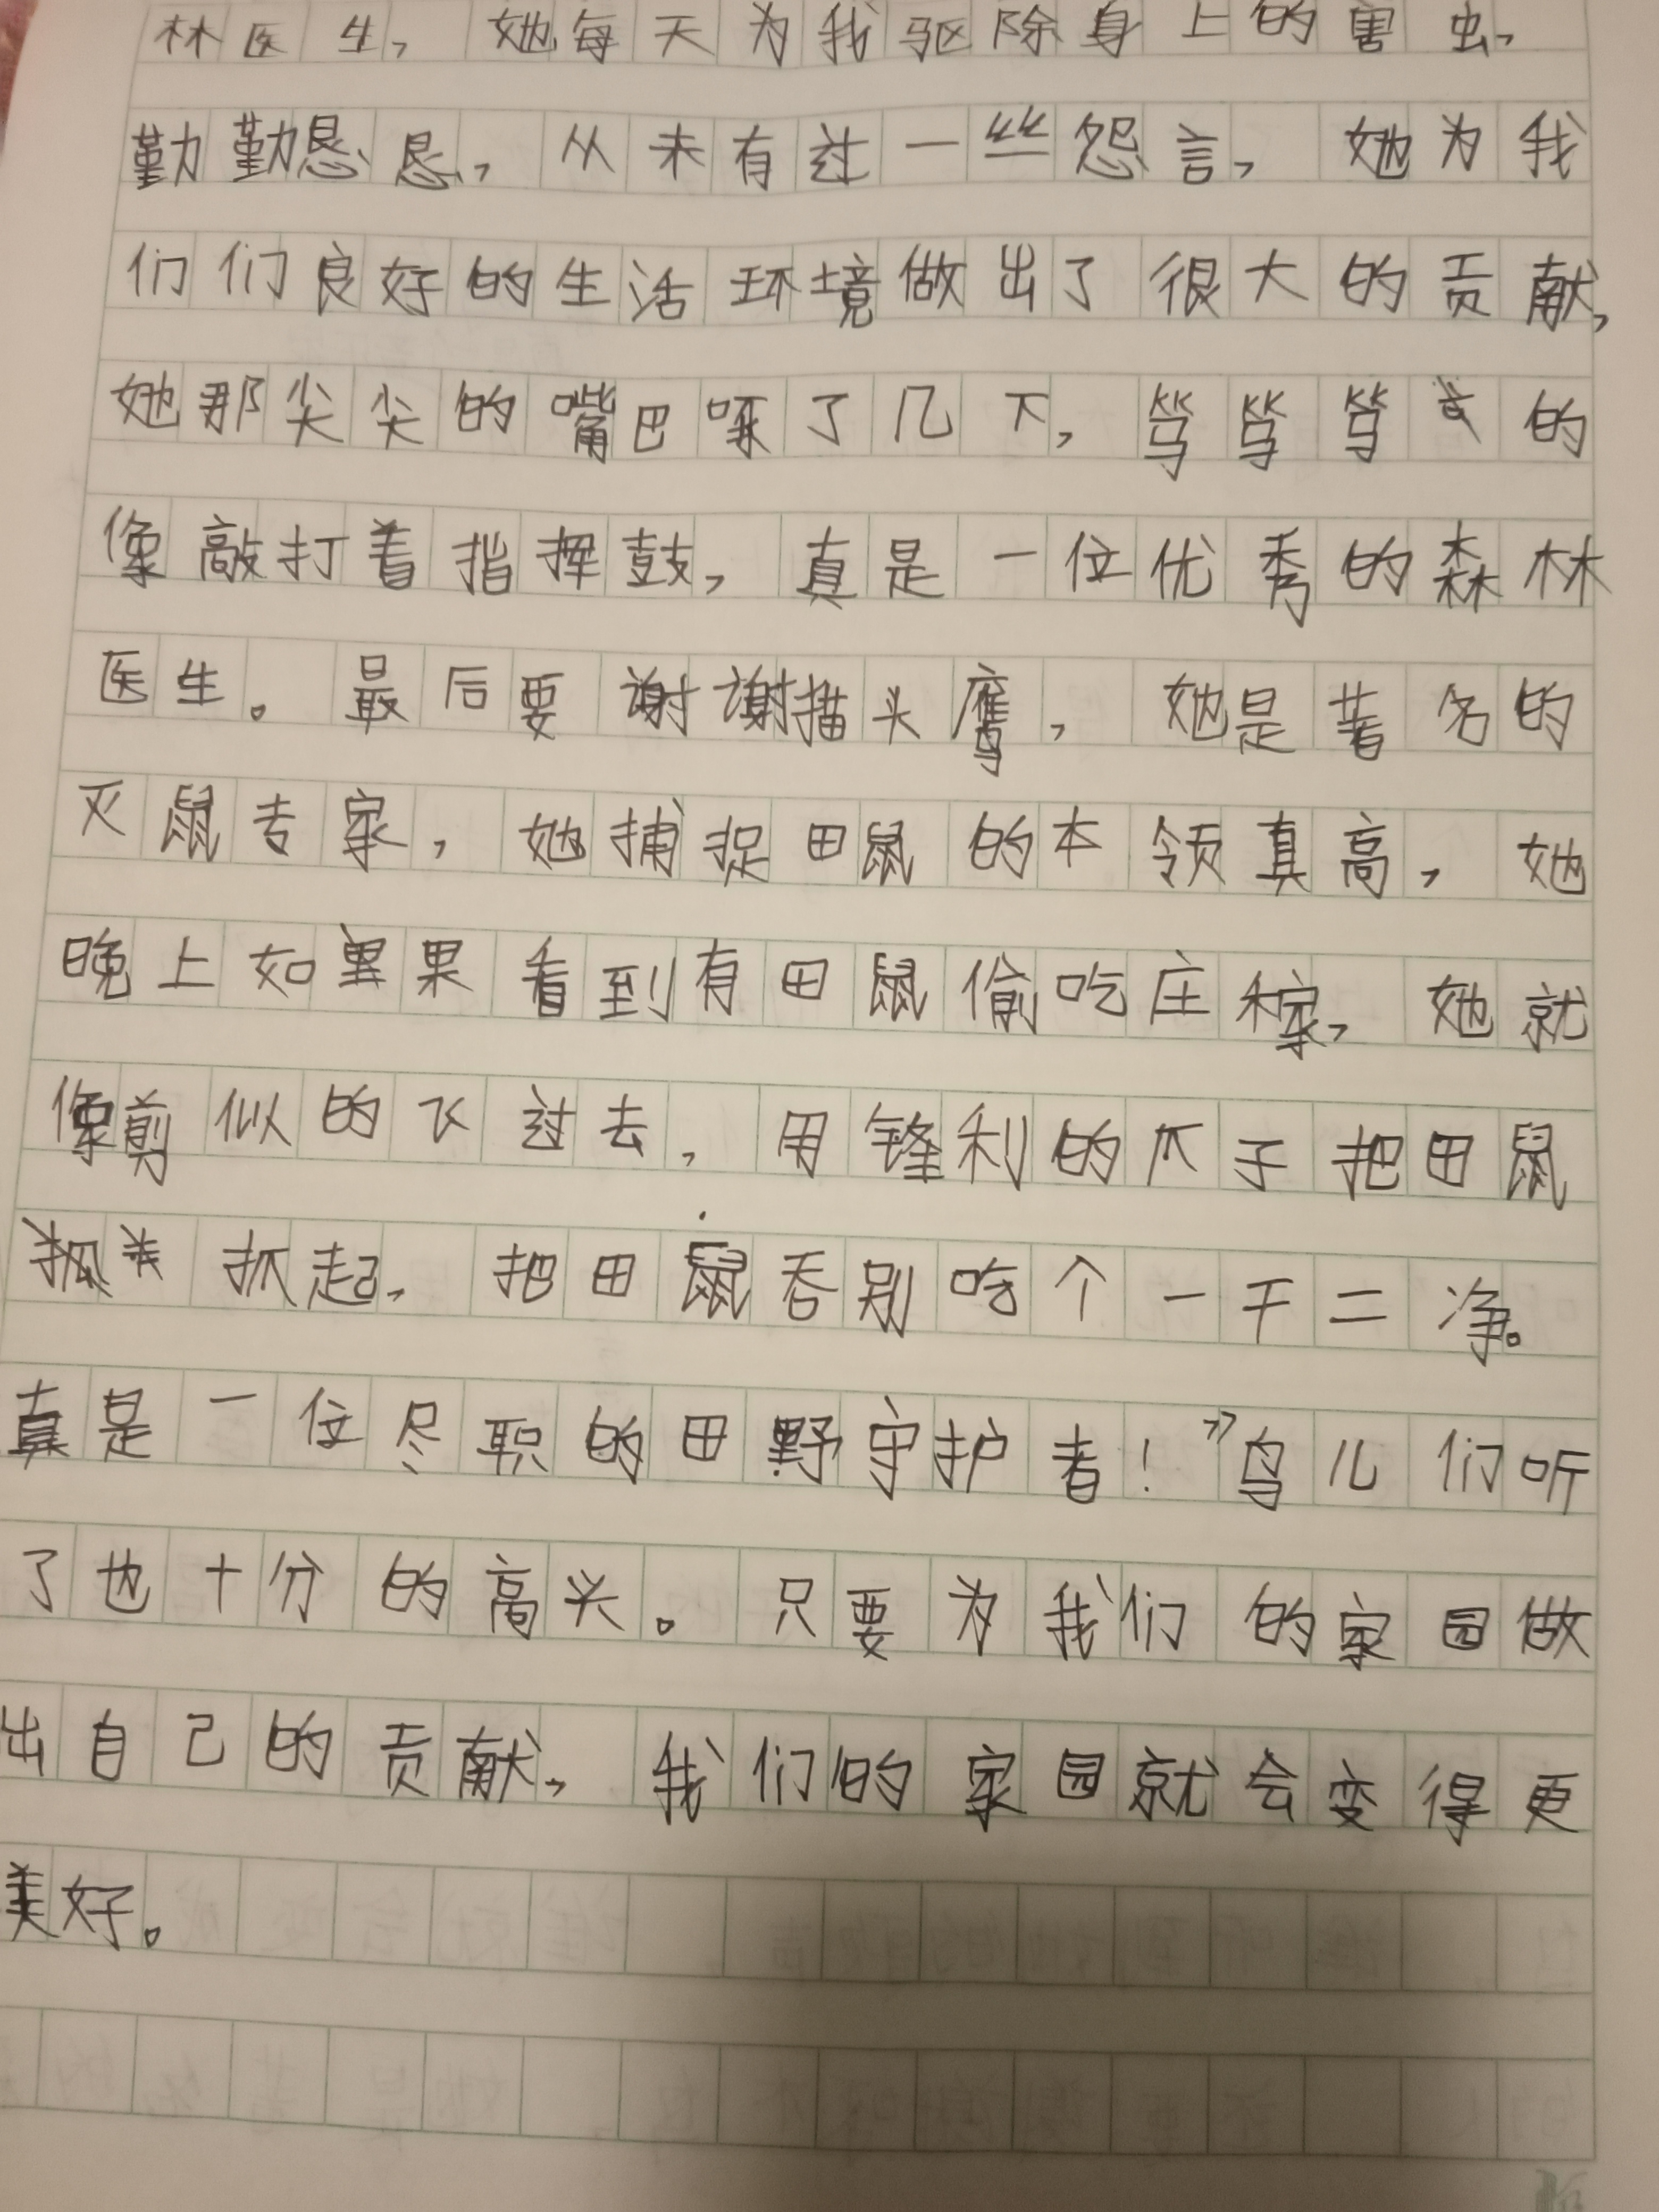 林医生，她每天为我驱除身上的害虫，
勤勤恳恳，从未有过一些怨言，她为我
们们良好的生活环境做出了很大的贡献，
她那尖尖的嘴巴啄了几下，笃笃笃的
像敲打着指挥鼓，真是一位优秀的森林
医生。最后要谢谢猫头鹰，她是著名的
灭鼠专家，她捕捉田鼠的本领真高，她
晚上如果看到有田鼠偷吃庄稼，她就
像剪似的飞过去，用锋利的爪子把田鼠
抓起，把田鼠吞别吃个一干二净。
真是一位尽职的田野守护者！”鸟儿们听
了也十分的高兴。只要为我们的家园做
出自己的贡献，我们的家园就会变得更
美好。